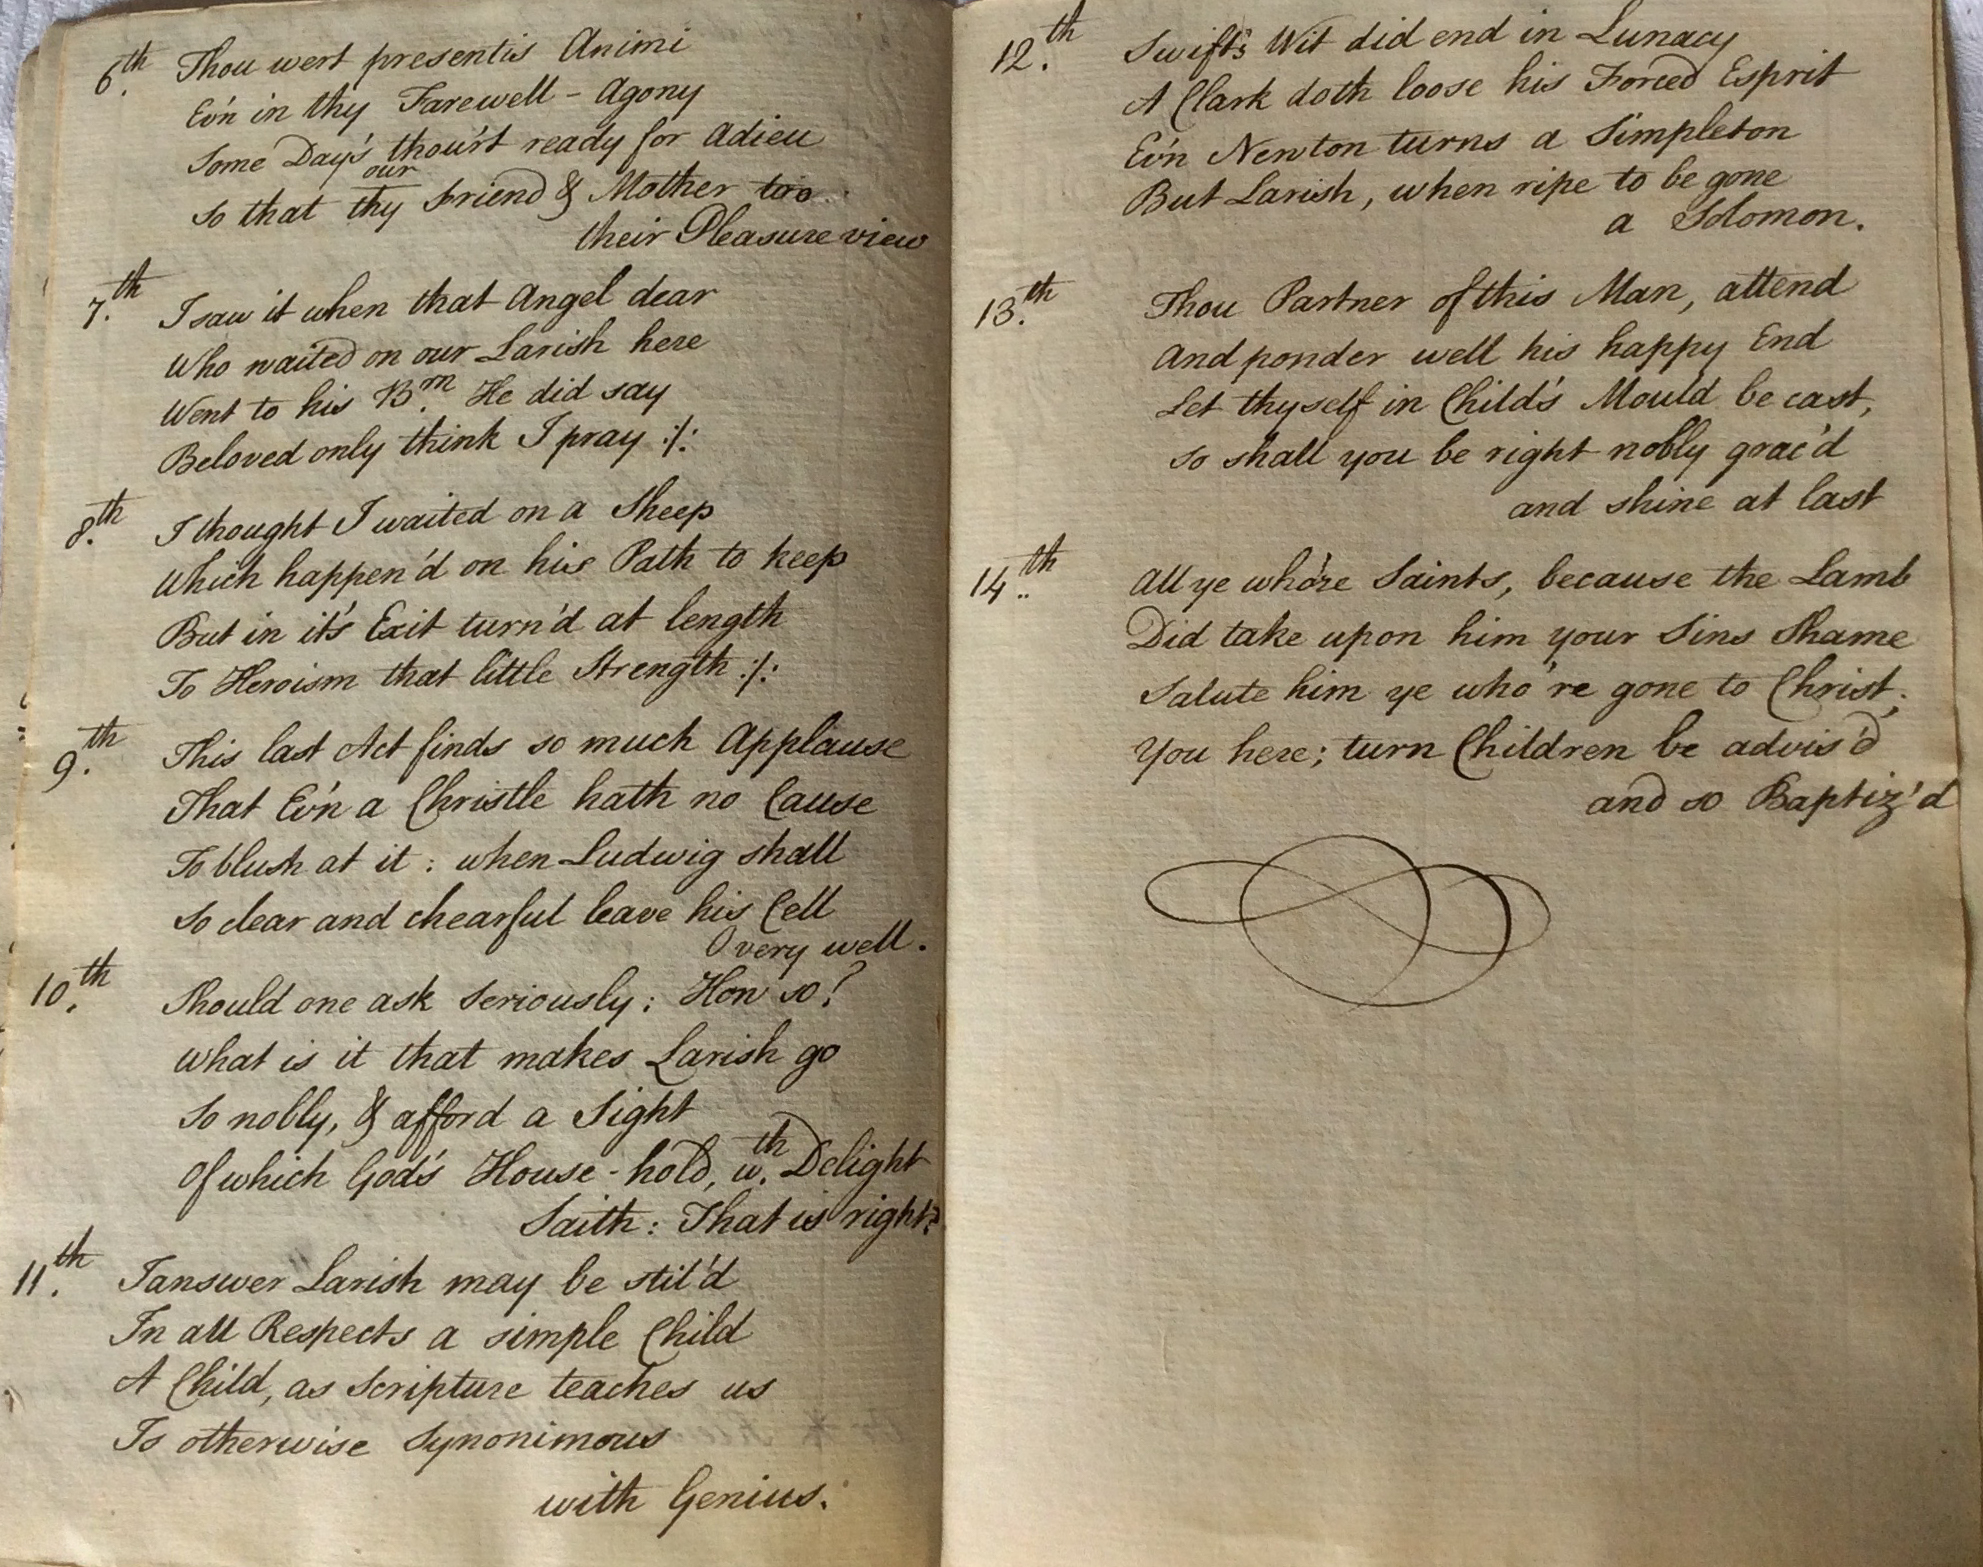 6.th Thou wert presentis Animi
Ev'n in thy Farewell - Agony
Some Day's thou'rt ready for Adieu
our
So that thy Friend & Mother too
their Pleasure view
7.th I saw it when that Angel dear
Who waited on our Larish here
Went to his B.m He did say
Beloved only think I pray :/:
8.th I thought I waited on a Sheep
Which happen'd on his Path to keep
But in it's Exit turn'd at length
To Heroism that little Strength :/:
9.th This last Act finds so much Applause
That Ev'n a Christle hath no Cause
To blush at it : when Ludwig shall
So clear and chearful leave his Cell
O very well.
10.th Should one ask seriously: How so?
What is it that makes Larish go
So nobly, & afford a Sight
Of which God's House-hold, w.th Delight
Saith: That is right?
11.th I answer Larish may be stil'd
In all Respects a simple Child
A Child, as Scripture teaches us
Is otherwise Synonimous
with Genius.
12.th Swift's Wit did end in Lunacy
A Clark doth loose his Forced Esprit
Ev'n Newton turns a Simpleton
But Larish, when ripe to be gone
a Solomon.
13.th Thou Partner of this Man, attend
And ponder well his happy End
Let thyself in Child's Mould be cast,
So shall you be right nobly grac'd
and shine at last
14.th All ye who're Saints, because the Lamb
Did take upon him your Sins Shame
Salute him ye who're gone to Christ;
You here; turn Children be advis'd
and so Baptiz'd